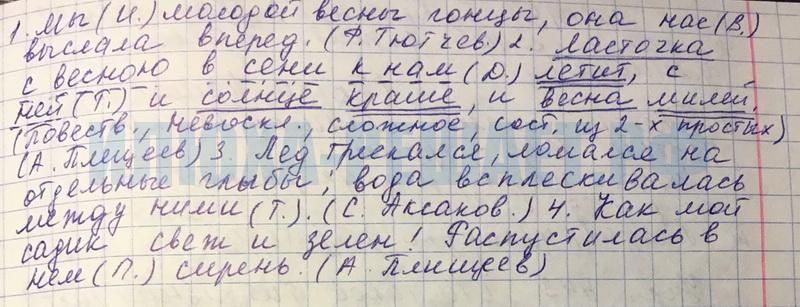 1. Мы (И.) молодой весны гонцы, она нас (В.)
выслала вперед. (Ф. Тютчев.) 2. Ласточка
с весною в сени к нам (Д.) летит, с
ней (Т.) и солнце краше, и весна милей.
(повеств., невоскл., сложное, сост. из 2-х простых)
(А. Плещеев) 3. Лед трескался, ломался на
отдельные глыбы; вода всплескивалась
между ними (Т.). (С. Аксаков.) 4. Как мой
садик свеж и зелен! Распустилась в
нем (П.) сирень. (А. Плищеев)